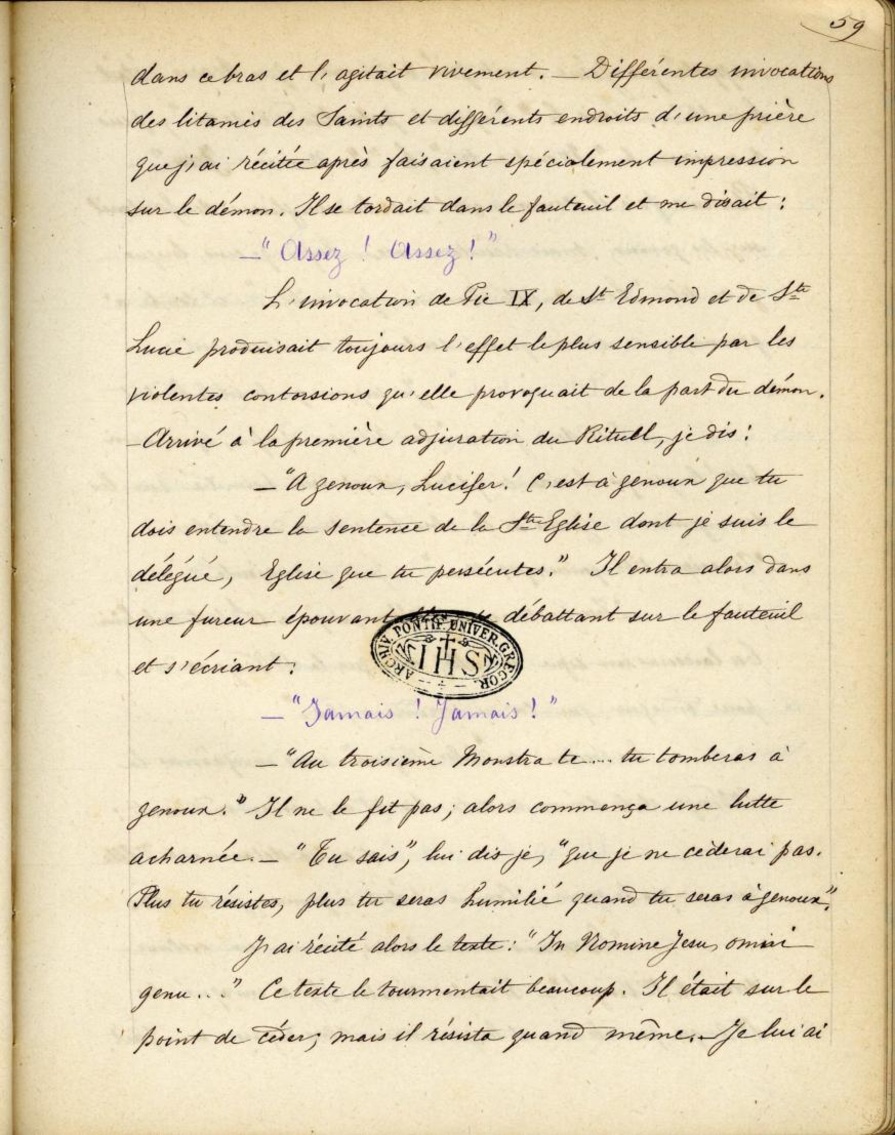 59
dans ce bras et l'agitait vivement. — Différentes invocations
des litamis des Saints et différents endroits d'une prière
que j'ai récitée après faisaient spécialement impression
sur le démon. Il se tordait dans le fauteuil et me disait :
— "Assez ! Assez !"
L'invocation de Pie IX, de St Edmond et de Ste
Lucie produisait toujours l'effet le plus sensible par les
violentes contorsions qu'elle provoquait de la part du démon.
Arrivé à la première adjuration du Rituel, je dis :
— "A genoux, Lucifer ! C'est à genoux que tu
dois entendre la sentence de la Ste Eglise dont je suis le
délégué, Eglise que tu persécutes." Il entra alors dans
une fureur débattant sur le fauteuil
et s'écriant :
ARCHIV. PONTIF. UNIVER. GREGOR.
IHS
— "Jamais ! Jamais !"
— "Au troisième Monstra te... tu tomberas à
genoux." Il ne le fit pas ; alors commença une lutte
acharnée. — "Tu sais", lui dis-je, "que je ne cèderai pas.
Plus tu résistes, plus tu seras humilié quand tu seras à genoux".
J'ai récité alors le texte : "In Nomine Jesu, omne
genu..." Ce texte le tourmentait beaucoup. Il était sur le
point de céder, mais il résista quand même. — Je lui ai